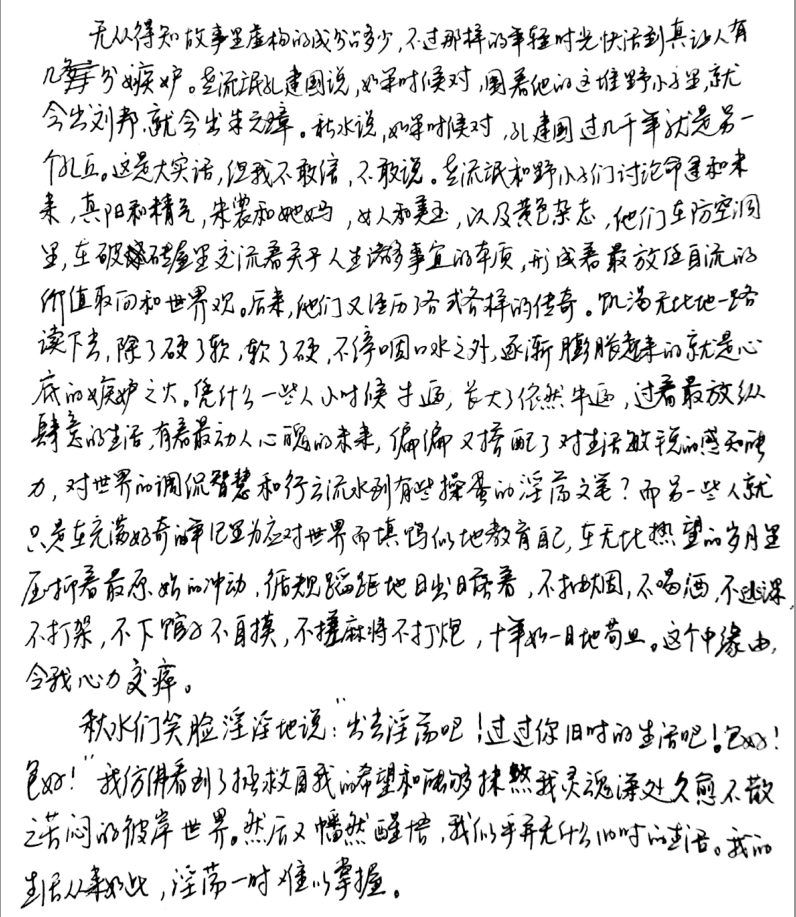 无从得知故事里虚构的成分占多少,不过那样的年轻时光快活到真让人有
几分嫉妒。老流氓孔建国说,如果时候对,围着他的这堆野小子里,就
会出刘邦,就会出朱元璋。秋水说,如果时候对,孔建国过几千年就是另一
个孔丘。这是大实话,但我不敢信,不敢说。老流氓和野小子们讨论命运和未
来,真阳和精气,朱裳和她妈,女人和美玉,以及黄色杂志,他们在防空洞
里,在破砖屋里交流着关于人生诸多事宜的本质,形成着最放任自流的
价值取向和世界观。后来,他们又经历了各式各样的传奇。饥渴无比地一路
读下去,除了硬了软,软了硬,不停咽口水之外,逐渐膨胀起来的就是心
底的嫉妒之火。凭什么一些人小时候牛逼,长大了依然牛逼,过着最放纵
肆意的生活,有着最动人心魄的未来,偏偏又搭配了对生活敏锐的感知能
力,对世界的调侃智慧和行云流水到有些操蛋的淫荡文笔?而另一些人就
只是在充满好奇的年纪里为应对世界而填鸭似地教育自己,在无比热望的岁月里
压抑着最原始的冲动,循规蹈矩地日出日落着,不抽烟,不喝酒,不逃课,
不打架,不下馆子不自摸,不搓麻将不打炮,十年如一日地苟且。这个中缘由,
令我心力交瘁。
秋水们笑脸淫淫地说:"出去淫荡吧!过过你旧时的生活吧!包好!
包好!"我仿佛看到了拯救自我的希望和能够抹煞我灵魂深处久愈不散
之苦闷的彼岸世界。然后又幡然醒悟,我似乎并无什么旧时的生活。我的
生活从来如此,淫荡一时难以掌握。